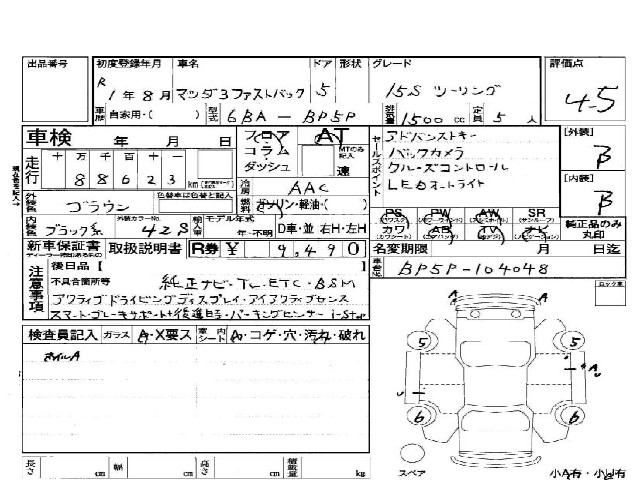 出品番号 初度登録年月 車名 ドア 形状 グレード 評価点
R 1年8月 マツダ3ファストバック 5 15S ツーリング 4.5
車歴 自家用・( ) 型式 6BA－BP5P 排気量 1500 cc 定員 5 人
車検 年 月 日 フロア AT
コラム MTのみ記入
ダッシュ 速
セールスポイント アドバンストキー
バックカメラ
クルーズコントロール
LEDオートライト
[外装] B
[内装] B
走行 十 万 千 百 十 一
88623 km
冷房 AAC
外装色 ブラウン 色替車は色替と記入 燃料 ガソリン・軽油・( )
内装色 ブラック系 外装カラーNo. 42S 輸入車 モデル年式 年・不明 D車・並 右H・左H
PS PW AW SR
(パワステ) (パワーウインド) (アルミホイル) (サンルーフ)
カワ AB TV ナビ
(カワシート) (エアバック) (ナビゲーション)
純正品のみ
丸印
新車保証書 取扱説明書 R券 ¥ 9,490 名変期限 月 日迄
車台No. BP5P-104048
注意事項 後日品 [
不具合箇所等 純正ナビ・TV・ETC・BSM
アクティブドライビングディスプレイ・アイアクティブセンス
スマートブレーキサポート・後退時・パーキングセンサー i-stop
検査員記入 ガラス A・X要ス 室内シート A・コゲ・穴・汚れ・破れ
ホイルA
5 5
A
A
U
U
6 6
スペア
小A有・小U有
長さ cm 幅 cm 高さ cm 積載量 kg